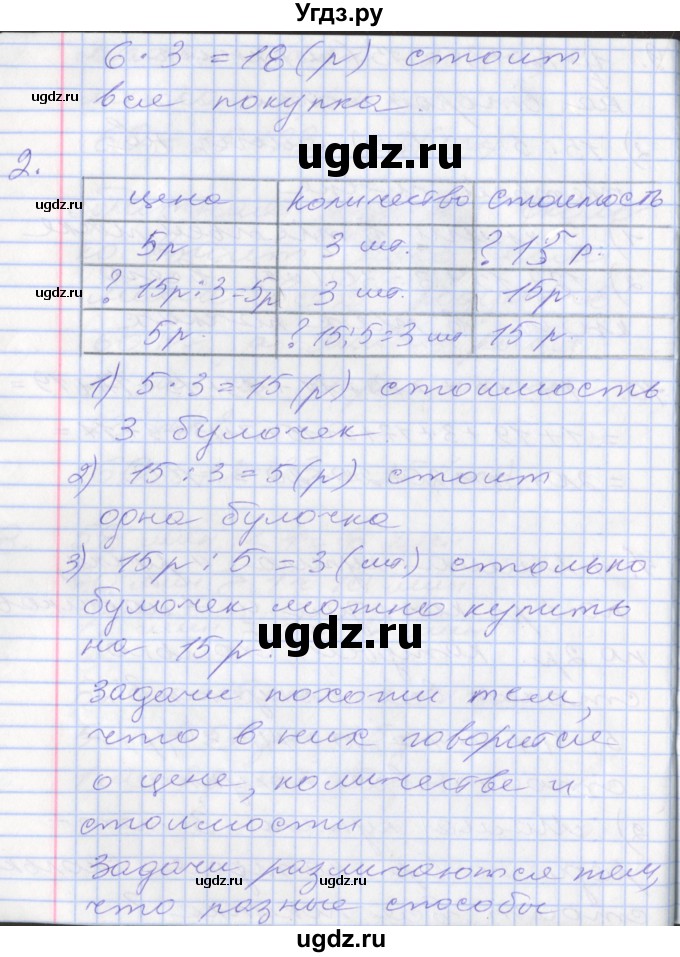 Угдз.ру
6 · 3 = 18 (р) стоит
вся покупка.
2.
цена количество стоимость
5р 3 шт. ? 15 р.
? 15р : 3 = 5р 3 шт. 15р
5р. ? 15 : 5 = 3 шт 15 р.
1) 5 · 3 = 15 (р) стоимость
3 булочек.
2) 15 : 3 = 5 (р) стоит
одна булочка
3) 15р : 5 = 3 (шт) столько
булочек можно купить
на 15р.
Задачи похожи тем,
что в них говорится
о цене, количестве и
стоимости
Задачи различаются тем,
что разные способы
ugdz.ru
ugdz.ru
ugdz.ru
ugdz.ru
ugdz.ru
ugdz.ru
ugdz.ru
ugdz.ru
ugdz.ru